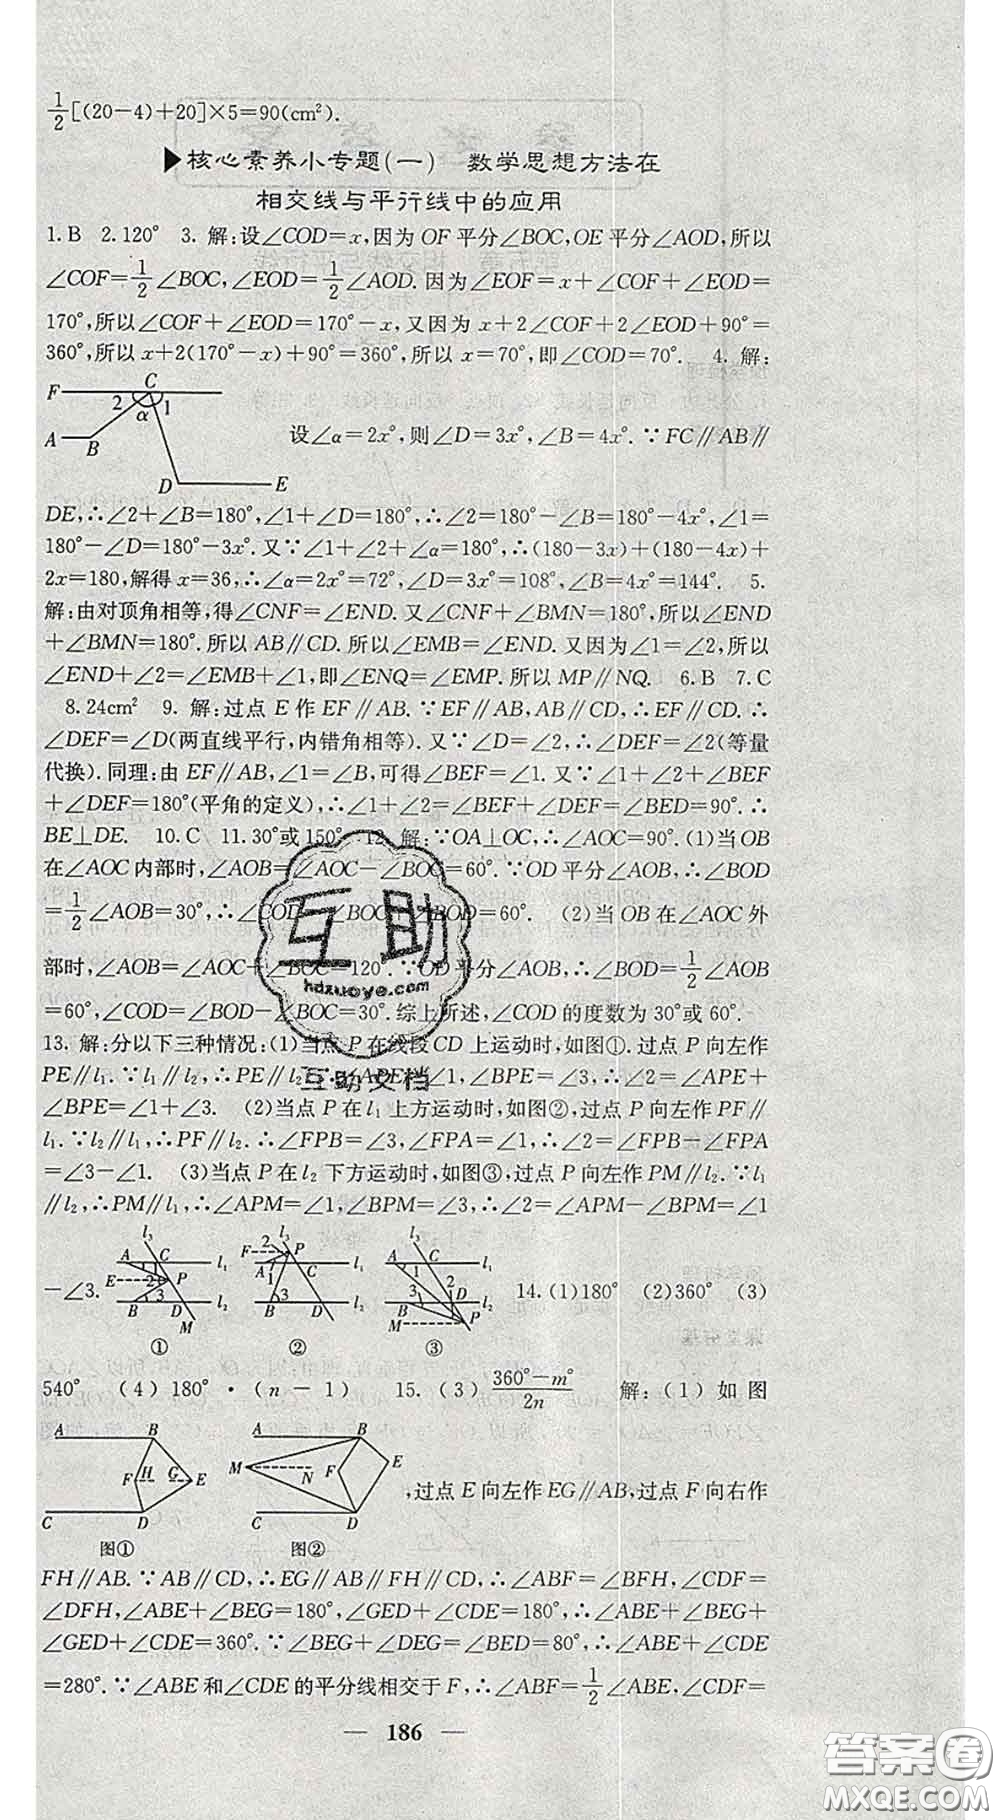 1/2[(20-4)+20]×5=90(cm²).
▶核心素养小专题(一)　数学思想方法在
相交线与平行线中的应用
1.B　2.120°　3. 解:设∠COD=x,因为OF平分∠BOC,OE平分∠AOD,所以
∠COF=1/2∠BOC,∠EOD=1/2∠AOD.因为∠EOF=x+∠COF+∠EOD=
170°,所以∠COF+∠EOD=170°-x,又因为x+2∠COF+2∠EOD+90°=
360°,所以x+2(170°-x)+90°=360°,所以x=70°,即∠COD=70°.　4. 解:
F C 2 α 1 A B D E
设∠α=2x°,则∠D=3x°,∠B=4x°.∵FC∥AB∥
DE,∴∠2+∠B=180°,∠1+∠D=180°,∴∠2=180°-∠B=180°-4x°,∠1=
180°-∠D=180°-3x°.又∵∠1+∠2+∠α=180°,∴(180-3x)+(180-4x)+
2x=180,解得x=36,∴∠α=2x°=72°,∠D=3x°=108°,∠B=4x°=144°.　5.
解:由对顶角相等,得∠CNF=∠END.又∠CNF+∠BMN=180°,所以∠END
+∠BMN=180°.所以AB∥CD.所以∠EMB=∠END.又因为∠1=∠2,所以
∠END+∠2=∠EMB+∠1,即∠ENQ=∠EMP.所以MP∥NQ.　6.B　7.C
8.24cm²　9. 解:过点E作EF∥AB.∵EF∥AB,AB∥CD,∴EF∥CD.∴
∠DEF=∠D(两直线平行,内错角相等).又∵∠D=∠2,∴∠DEF=∠2(等量
代换).同理:由EF∥AB,∠1=∠B,可得∠BEF=∠1.又∵∠1+∠2+∠BEF
+∠DEF=180°(平角的定义),∴∠1+∠2=∠BEF+∠DEF=∠BED=90°.∴
BE⊥DE.　10.C　11.30°或150°　12. 解:∵OA⊥OC,∴∠AOC=90°.(1)当OB
在∠AOC内部时,∠AOB=∠AOC-∠BOC=60°.∵OD平分∠AOB,∴∠BOD
=1/2∠AOB=30°,∴∠COD=∠BOC+∠BOD=60°.　(2)当OB在∠AOC外
部时,∠AOB=∠AOC+∠BOC=120°.∵OD平分∠AOB,∴∠BOD=1/2∠AOB
=60°,∠COD=∠BOD-∠BOC=30°.综上所述,∠COD的度数为30°或60°.
13. 解:分以下三种情况:(1)当点P在线段CD上运动时,如图①.过点P向左作
PE∥l₁.∵l₁∥l₂,∴PE∥l₂.∴∠APE=∠1,∠BPE=∠3.∴∠2=∠APE+
∠BPE=∠1+∠3.　(2)当点P在l₁上方运动时,如图②,过点P向左作PF∥
l₁.∵l₂∥l₁,∴PF∥l₂.∴∠FPB=∠3,∠FPA=∠1,∴∠2=∠FPB-∠FPA
=∠3-∠1.　(3)当点P在l₂下方运动时,如图③,过点P向左作PM∥l₂.∵l₁
∥l₂,∴PM∥l₁,∴∠APM=∠1,∠BPM=∠3,∴∠2=∠APM-∠BPM=∠1
-∠3.
A C l₃ l₁ 1 E 2 P 3 B D l₂ M
①
F 2 P l₃ A C l₁ 1 3 B D l₂
②
A C l₃ l₁ 1 2 3 B D l₂ M P
③
14.(1)180°　(2)360°　(3)
540°　(4)180°·(n-1)　15.(3) (360°-m°)/2n　解:(1)如图
A B F H G E C D
图①
A B M N F E C D
图②
,过点E向左作EG∥AB,过点F向右作
FH∥AB.∵AB∥CD,∴EG∥AB∥FH∥CD,∴∠ABF=∠BFH,∠CDF=
∠DFH,∠ABE+∠BEG=180°,∠GED+∠CDE=180°,∴∠ABE+∠BEG+
∠GED+∠CDE=360°.∵∠BEG+∠DEG=∠BED=80°,∴∠ABE+∠CDE
=280°.∵∠ABE和∠CDE的平分线相交于F,∴∠ABF=1/2∠ABE,∠CDF=
— 186 —
互助
hdzuoye.com
互助文档
答案圈
MXQE.COM